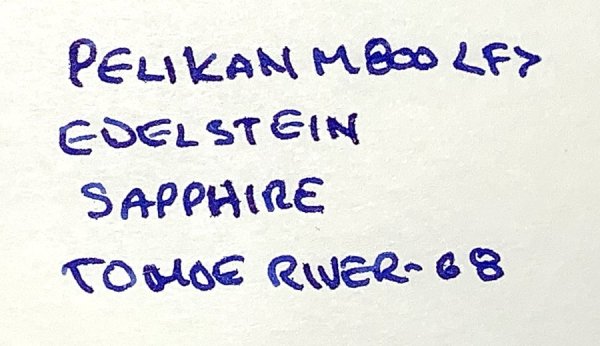 PELIKAN M800 <F>
EDELSTEIN
SAPPHIRE
TOMOE RIVER-68